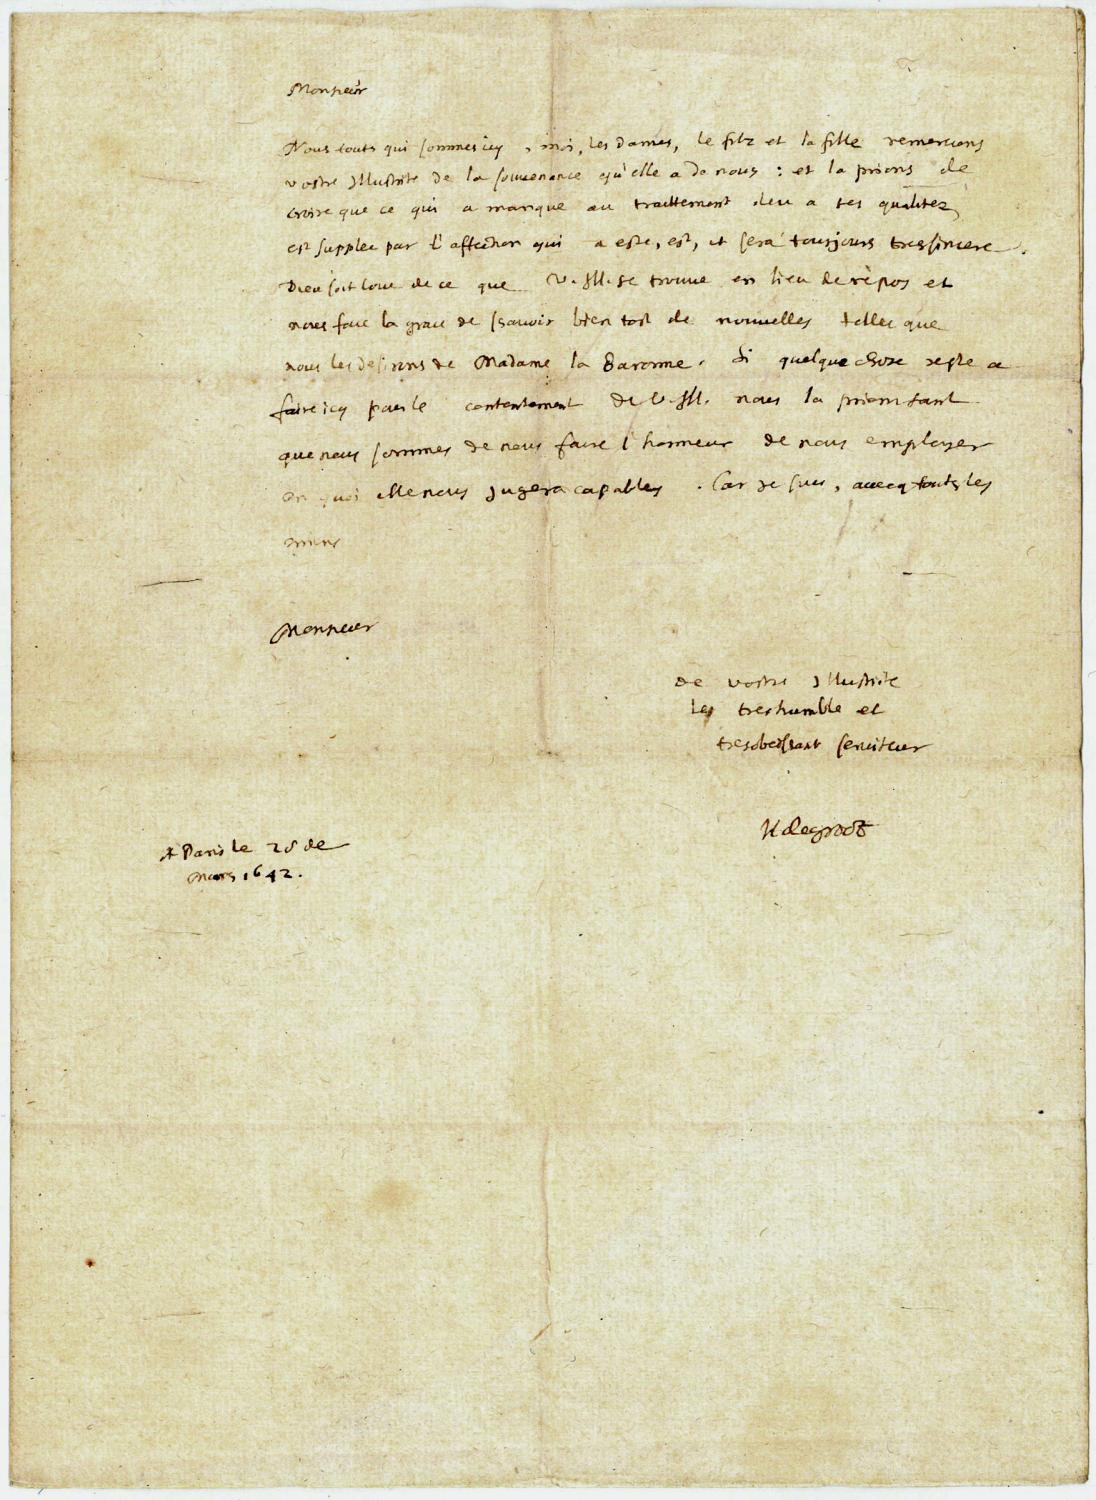 Monsieur
Nous touts qui sommes icy, moi, les dames, le filz et la fille remercions
vostre Illustrité de la souvenance qu'elle a de nous: et la prions de
croire que ce qui a manque au traittement deu a ses qualitez,
est supplee par l'affection qui a este, est, et sera tousjours tressincere.
Dieu soit loue de ce que V. Ill. se trouve en lieu de repos et
nous face la grace de scavoir bien tost de nouvelles telles que
nous les desirons de Madame la Baronne. Si quelque chose reste a
faire icy pour le contentement de V. Ill. nous la prions tant
que nous sommes de nous faire l'honneur de nous employer
en quoi elle nous jugera capables. Car je suis, avecq touts les
miens
Monsieur
de vostre Illustrité
treshumble et
tresobeissant serviteur
H de groot
A Paris le 28 de
Mars 1642.